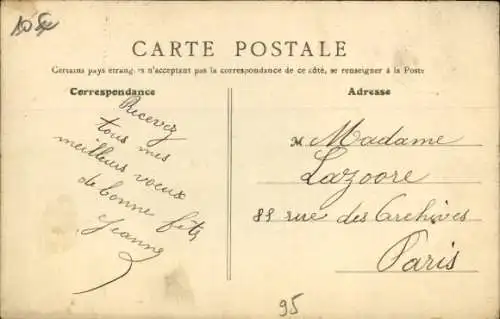 CARTE POSTALE
Certains pays étrangers n'acceptant pas la correspondance de ce côté, se renseigner à la Poste
Correspondance
Adresse
Recevez
tous mes
meilleurs voeux
de bonne fête
Jeanne
M Madame
Lazoore
88 rue des Archives
Paris
95